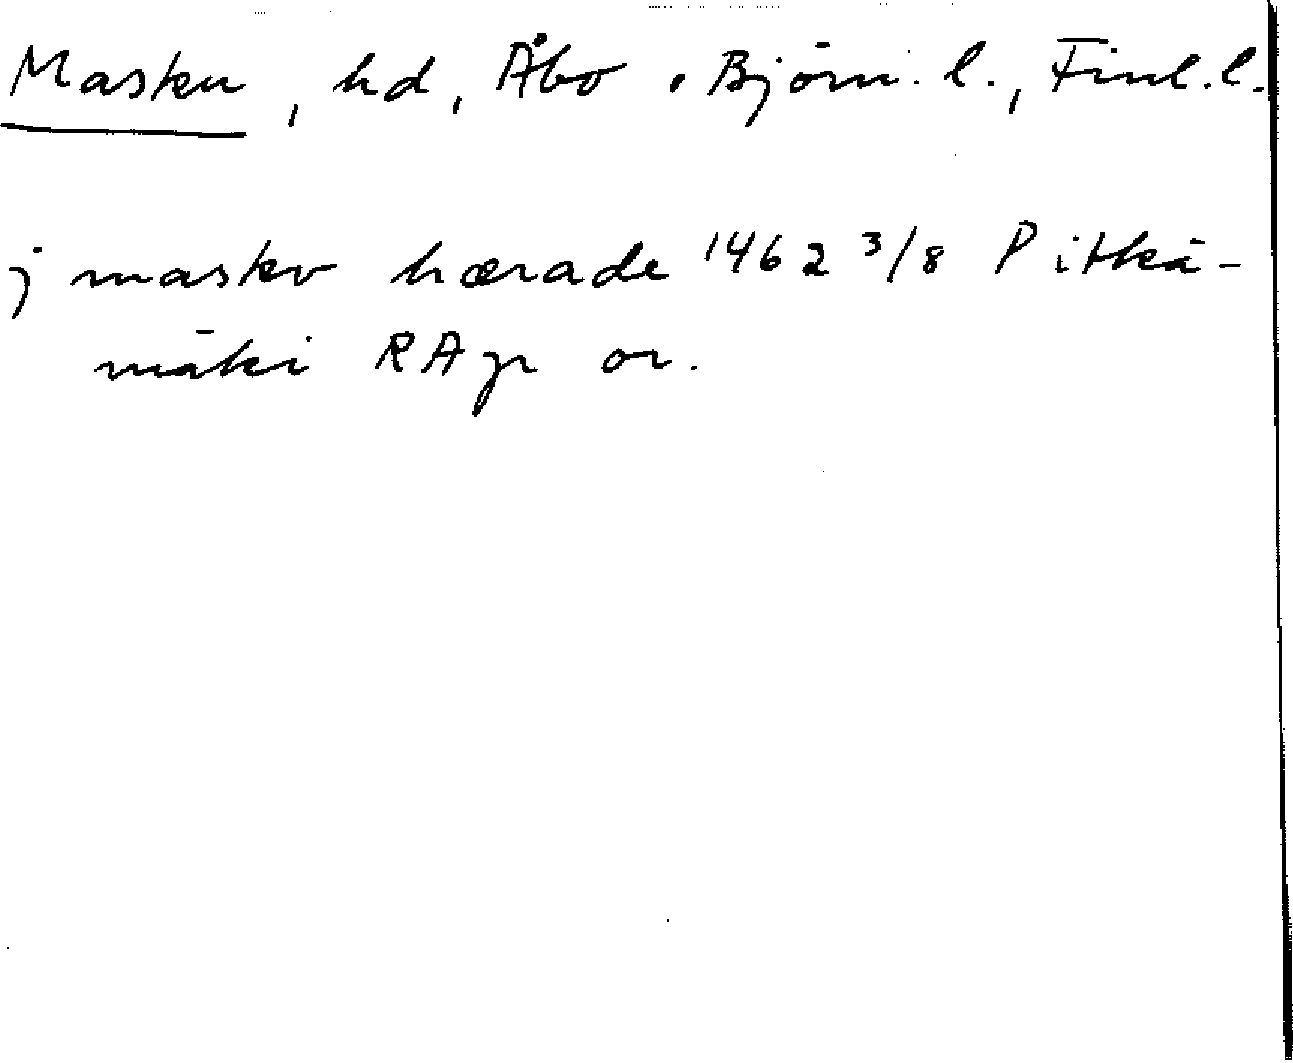 Masku, hd, Åbo o. Björn. l., Finl. l.
j maskv hærade 1462 3/8 Pitkä-
mäki RAp or.